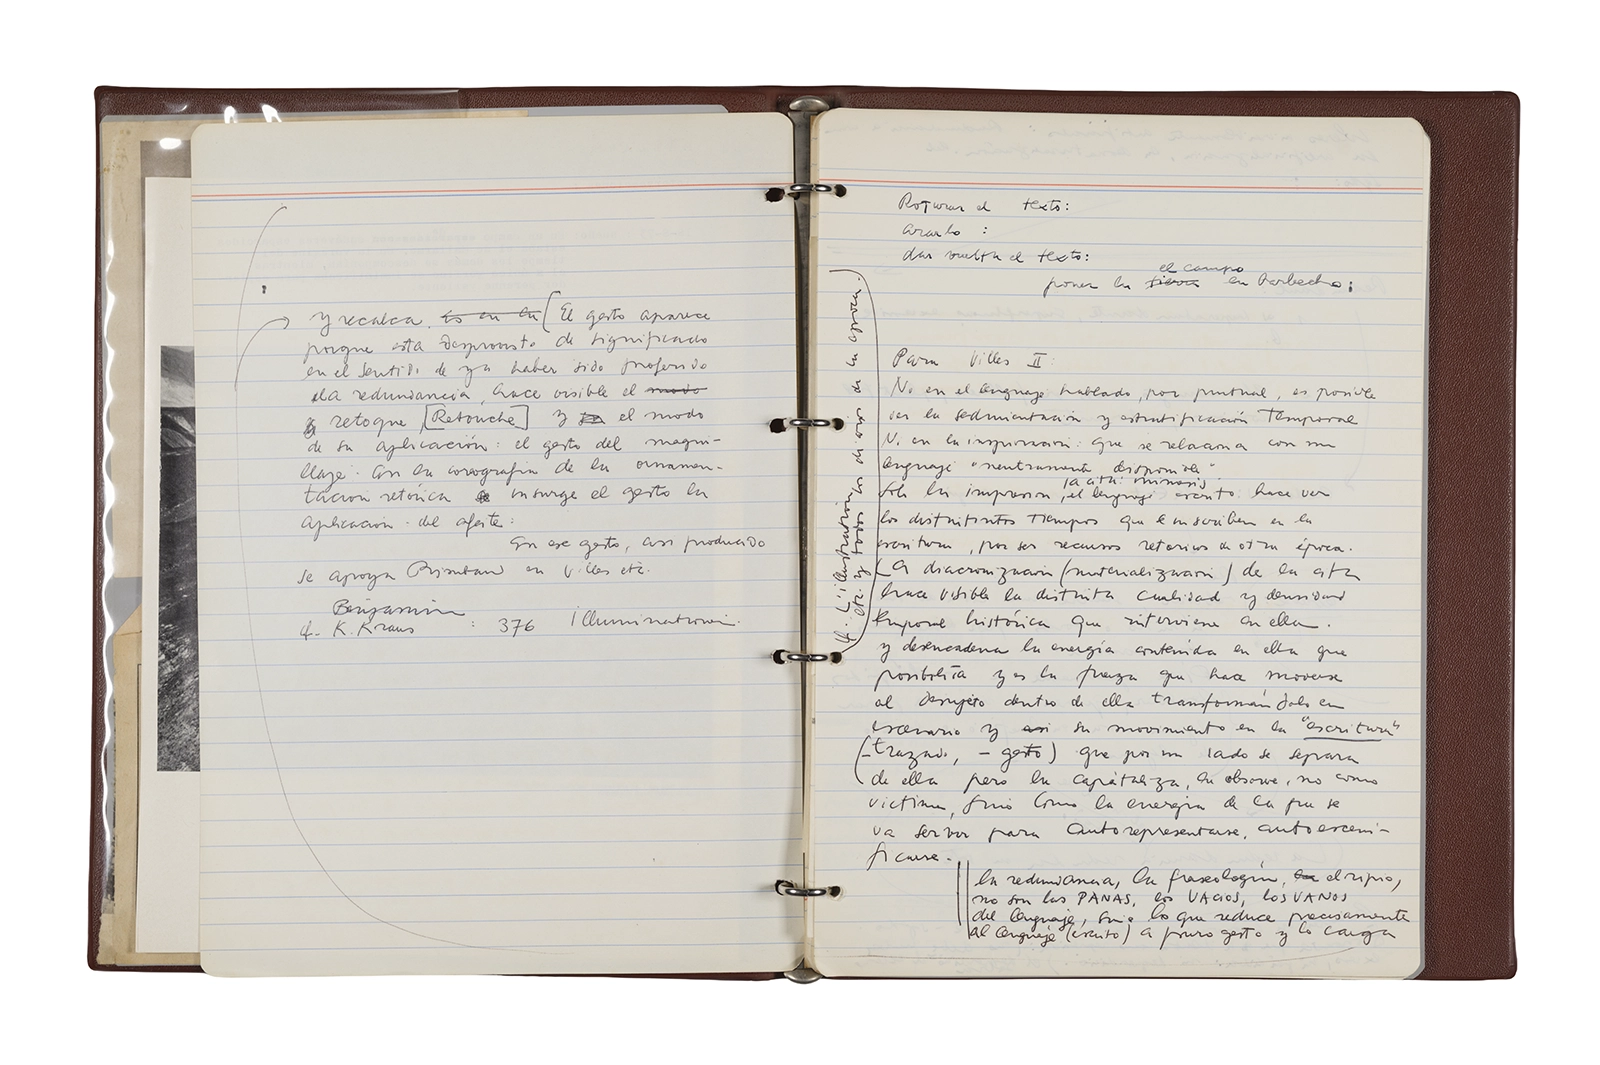 y recalca. es en la (El gesto aparece
porque esta desprovisto de significado
en el sentido de ya haber sido proferido
la redundancia, hace visible el modo
y retoque [Retouche] y el modo
de su aplicación: el gesto del maqui-
llaje. Con la coreografía de la ornamen-
tación retórica insurge el gesto la
aplicación del afeite:
En ese gesto, así producido
se apoya Rimbaud en Villes etc.
Benjamin
cf. K. Kraus : 376 Illuminationen.
Roturar el texto:
ararlo :
dar vuelta el texto:
el campo
poner la tierra en barbecho;
Para Villes II:
No en el lenguaje hablado, por puntual, es posible
ver la sedimentación y estratificación temporal
N. en la inspiración: que se relaciona con un
lenguaje "neutramente disponible"
la cita: mimesis
Solo la impresión, el lenguaje escrito hace ver
los distintintos tiempos que se inscriben en la
escritura, por ser recursos retóricos de otra época.
(La diacronización (materialización) de la cita
hace visible la distinta cualidad y densidad
temporal histórica que interviene en ella.
y desencadena la energía contenida en ella que
posibilita y es la fuerza que hace moverse
al sujeto dentro de ella transformándolo en
escenario y así su movimiento en la "escritura"
(-trazado, - gesto) que por un lado se separa
de ella pero la capitaliza, la absorve, no como
victima, sino como la energia de la que se
va servir para autorepresentarse, autoesceni-
ficarse.
la redundancia, la fraseología, la el ripio,
no son las PANAS, los VACIOS, los VANOS
del lenguaje, sino lo que reduce precisamente
al lenguaje (escrito) a puro gesto y lo carga
cf. L'illustration
etc. y todos los de la época.